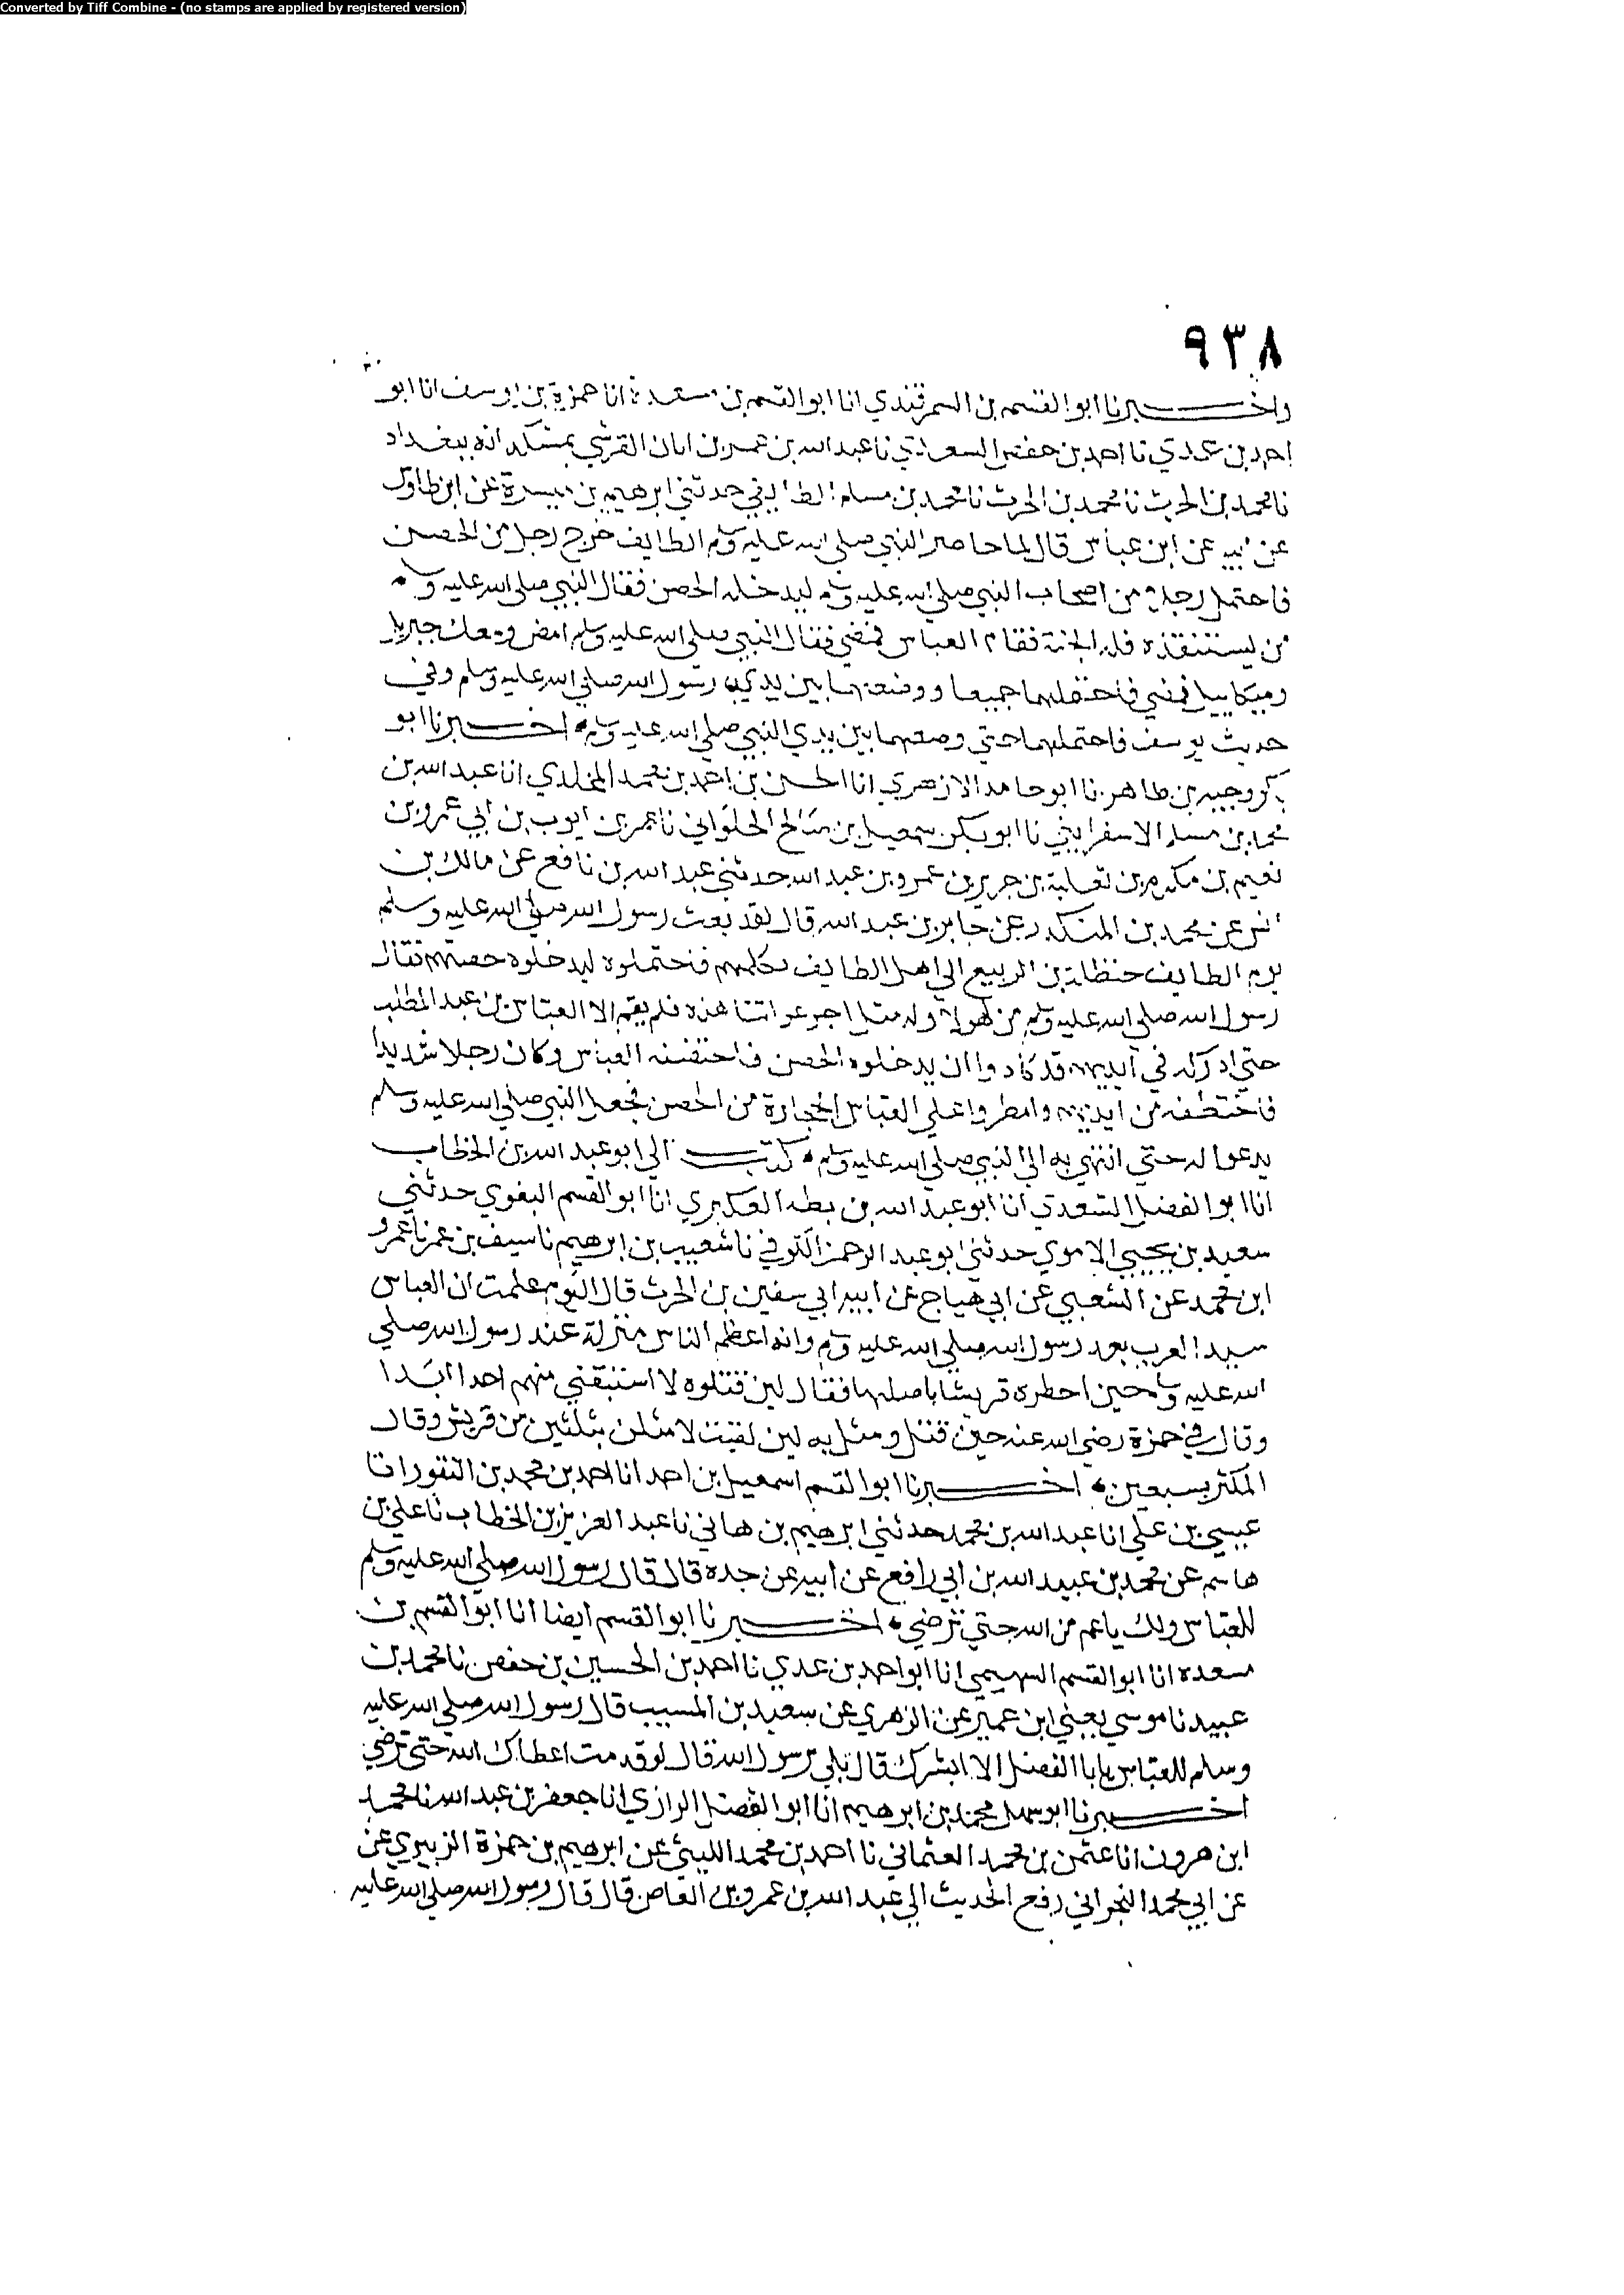 Converted by Tiff Combine - (no stamps are applied by registered version)
٩٣٨
واخبرنا ابو القسم بن السمرقندي انا ابو القسم بن مسعدة انا حمزة بن يوسف انا ابو
احمد بن عدي نا احمد بن حفص السعدي نا عبد الله بن عمر بن ابان القرشي بمشكدانه ببغداد
نا محمد بن الحرث نا محمد بن الحرث نا محمد بن مسلم الطايفي حدثني ابرهيم بن ميسرة عن ابن طاوس
عن ابيه عن ابن عباس قال لما حاصر النبي صلى الله عليه وسلم الطايف خرج رجل من الحصن
فاحتمل رجلا من اصحاب النبي صلى الله عليه وسلم ليدخله الحصن فقال النبي صلى الله عليه وسلم
من يستنقذه فله الجنة فقام العباس فمضى فقال النبي صلى الله عليه وسلم امض ومعك جبريل
وميكاييل فمضى فاحتملهما جميعا ووضعهما بين يدي رسول الله صلى الله عليه وسلم وفي
حديث يوسف فاحتملهما حتي وضعهما بين يدي النبي صلى الله عليه وسلم اخبرنا ابو
بكر وجيه بن طاهر نا ابو حامد الازهري انا الحسن بن احمد بن محمد المخلدي انا عبد الله بن
محمد بن مسلم الاسفرايني نا ابو بكر سمعيل بن صالح الحلواني نا عمر بن ايوب بن ابي عمرو بن
نعيم بن مكدم بن ثعلبة بن جرير بن عمرو بن عبد الله حدثني عبد الله بن نافع عن مالك بن
انس عن محمد بن المنكدر عن جابر بن عبد الله قال لقد بعث رسول الله صلى الله عليه وسلم
يوم الطايف حنظلة بن الربيع الي اهل الطايف فكلمهم فاحتملوه ليدخلوه حصنهم فقال
رسول الله صلى الله عليه وسلم من لهولا وله مثل اجر غزاتنا هذه فلم يقم الا العباس بن عبد المطلب
حتي ادركه في ايديهم قد كادوا ان يدخلوه الحصن فاحتضنه العباس وكان رجلا شديدا
فاختطفه من ايديهم وامطروا علي العباس الحجارة من الحصن فجعل النبي صلى الله عليه وسلم
يدعوا له حتي انتهي به الي النبي صلى الله عليه وسلم كتب الي ابو عبد الله بن الخطاب
انا ابو الفضل السعدي انا ابو عبد الله بن بطه العكبري انا ابو القسم البغوي حدثني
سعيد بن يحيي الاموي حدثني ابو عبد الرحمن الكوفي نا شعيب بن ابرهيم نا سيف بن عمر نا عمرو
ابن محمد عن الشعبي عن ابي هياج عن ابيه ابي سفين بن الحرث قال اليوم علمت ان العباس
سيد العرب بعد رسول الله صلى الله عليه وسلم وانه اعظم الناس منزلة عند رسول الله صلى
الله عليه وسلم حين احطره قريشا باصلها فقال لين قتلوه لا استبقي منهم احدا ابدا
وقال في حمزة رضي الله عنه حين قتل ومثل به لين بقيت لامثلن بثلثين من قريش وقال
المكثر بسبعين اخبرنا ابو القسم اسمعيل بن احمد انا احمد بن محمد بن النقور انا
عيسي بن علي انا عبد الله بن محمد حدثني ابرهيم بن هاني نا عبد العزيز بن الخطاب نا علي بن
هاشم عن محمد بن عبيد الله بن ابي رافع عن ابيه عن جده قال قال رسول الله صلى الله عليه وسلم
للعباس ولك يا عم من الله حتي ترضي اخبرنا ابو القسم ايضا انا ابو القسم بن
مسعده انا ابو القسم السهمي انا ابو احمد بن عدي نا احمد بن الحسين بن حفص نا محمد بن
عبيد نا موسي يعني ابن عمير عن الزهري عن سعيد بن المسيب قال رسول الله صلى الله عليه
وسلم للعباس يابا الفضل الا ابشرك قال بلي يرسول الله قال لو قدمت اعطاك الله حتي ترضي
اخبرنا ابو سهل محمد بن ابرهيم انا ابو الفضل الرازي انا جعفر بن عبد الله نا محمد
ابن هرون انا عثمن بن محمد العثماني نا احمد بن محمد الليثي عن ابرهيم بن حمزة الزبيري عن
عن ابي محمد النجراني رفع الحديث الي عبد الله بن عمرو بن العاص قال قال رسول الله صلى الله عليه